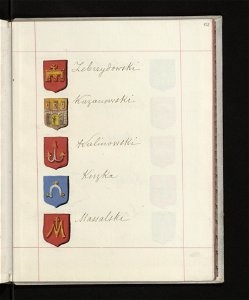 Zebrzydowski
Kazanowski
Kalinowski
Kiszka
Massalski